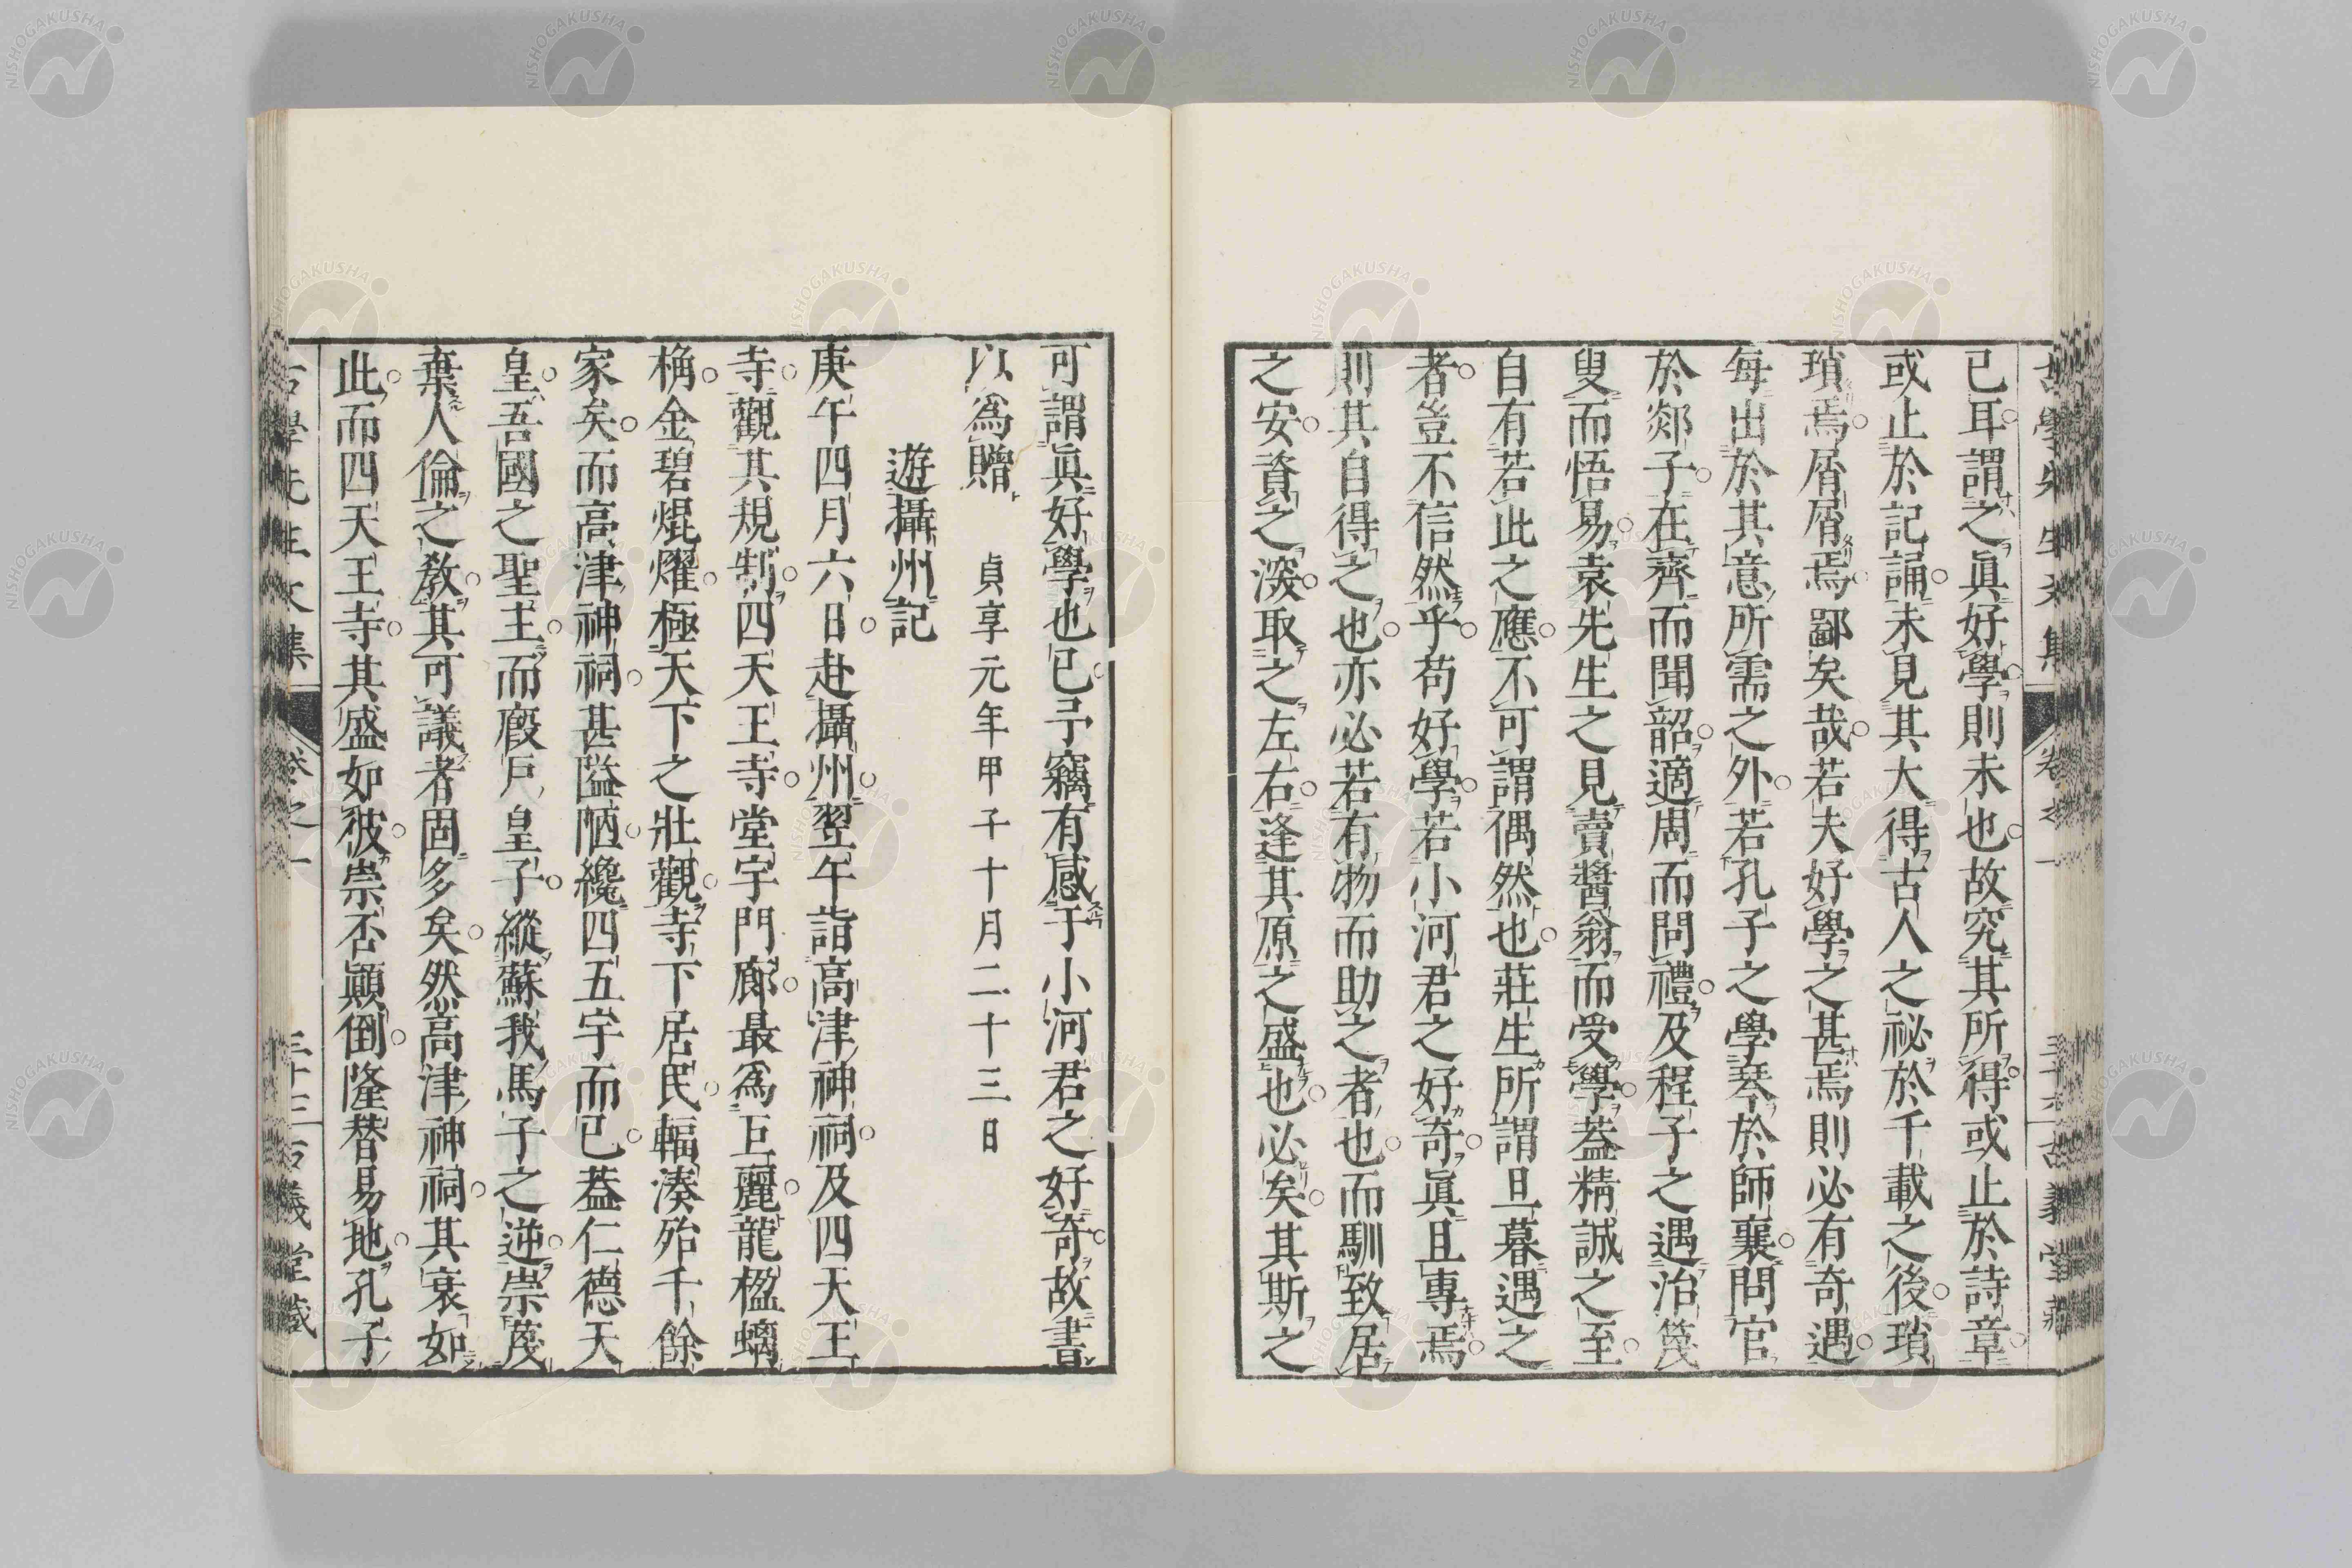 已耳。謂之眞好學。則未也。故究其所得。或止於詩章。
或止於記誦。未見其大得古人之祕於千載之後。瑣
瑣焉。屑屑焉。鄙矣哉。若夫好學之甚焉。則必有奇遇。
每出於其意所需之外。若孔子之學琴於師襄。問官
於郯子。在齊而聞韶。適周而問禮。及程子之遇治篾
叟而悟易。袁先生之見賣醬翁而受學。蓋精誠之至。
自有若此之應。不可謂偶然也。莊生所謂旦暮遇之
者。豈不信然乎。苟好學。若小河君之好奇。眞且專焉。
則其自得之也。亦必若有物而助之者也。而馴致居
之安。資之深。取之左右。逢其原之盛也。必矣。其斯之
可謂眞好學也已。予竊有感于小河君之好奇。故書
以爲贈
貞享元年甲子十月二十三日
遊攝州記
庚午四月六日。赴攝州。翌午詣高津神祠。及四天王
寺。觀其規制。四天王寺。堂宇門廊。最爲巨麗。龍楹螭
桷。金碧焜燿。極天下之壯觀。寺下居民。輻湊殆千餘
家矣。而高津神祠。甚隘陋。纔四五宇而已。蓋仁德天
皇。吾國之聖主。而廐戶皇子。縱蘇我馬子之逆。崇蔑
棄人倫之敎。其可議者固多矣。然高津神祠。其衰如
此。而四天王寺。其盛如彼。崇否顚倒。隆替易地。孔子
古學先生文集
卷之一
三十三
古義堂藏